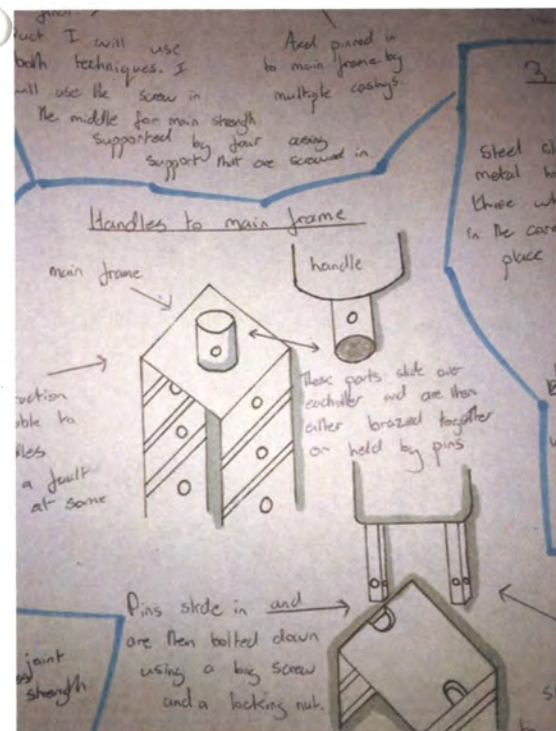 uct I will use
both techniques. I
will use the screw in
the middle for main strength
supported by four casing
support that are screwed in.
And pinned in
to main frame by
multiple casings.
3.
Steel
metal
three
in the
place
Handles to main frame
main frame
handle
These parts slide over
eachother and are then
either brazed together
or held by pins
uction
able to
a fault
at some
Pins slide in and
are then bolted down
using a big screw
and a locking nut.
joint
strength